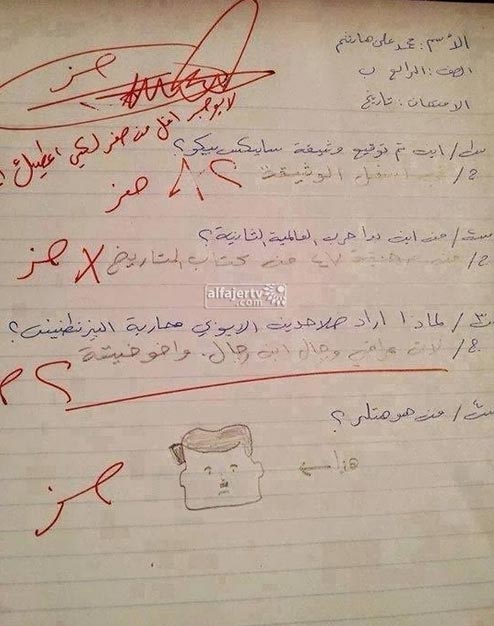 الأسم: محمد علي هاشم
الصف: الرابع ب
الامتحان: تاريخ
صفر
لا يوجد اقل من صفر لكي اعطيك
س١/ اين تم توقيع وثيقة سايكس بيكو؟
ج/ في اسفل الوثيقة
صفر
س٢/ من اين بدا حرب العالمية الثانية؟
ج/ من صفحة ٧٤ من كتاب التاريخ
صفر
alfajertv
.com
س٣/ لماذا اراد صلاح الدين الايوبي محاربة البيزنطيين؟
ج/ لانه عراقي ورجال ابن رجال. واخو خيتة
س٤/ من هو هتلر؟
هذا ←
صفر